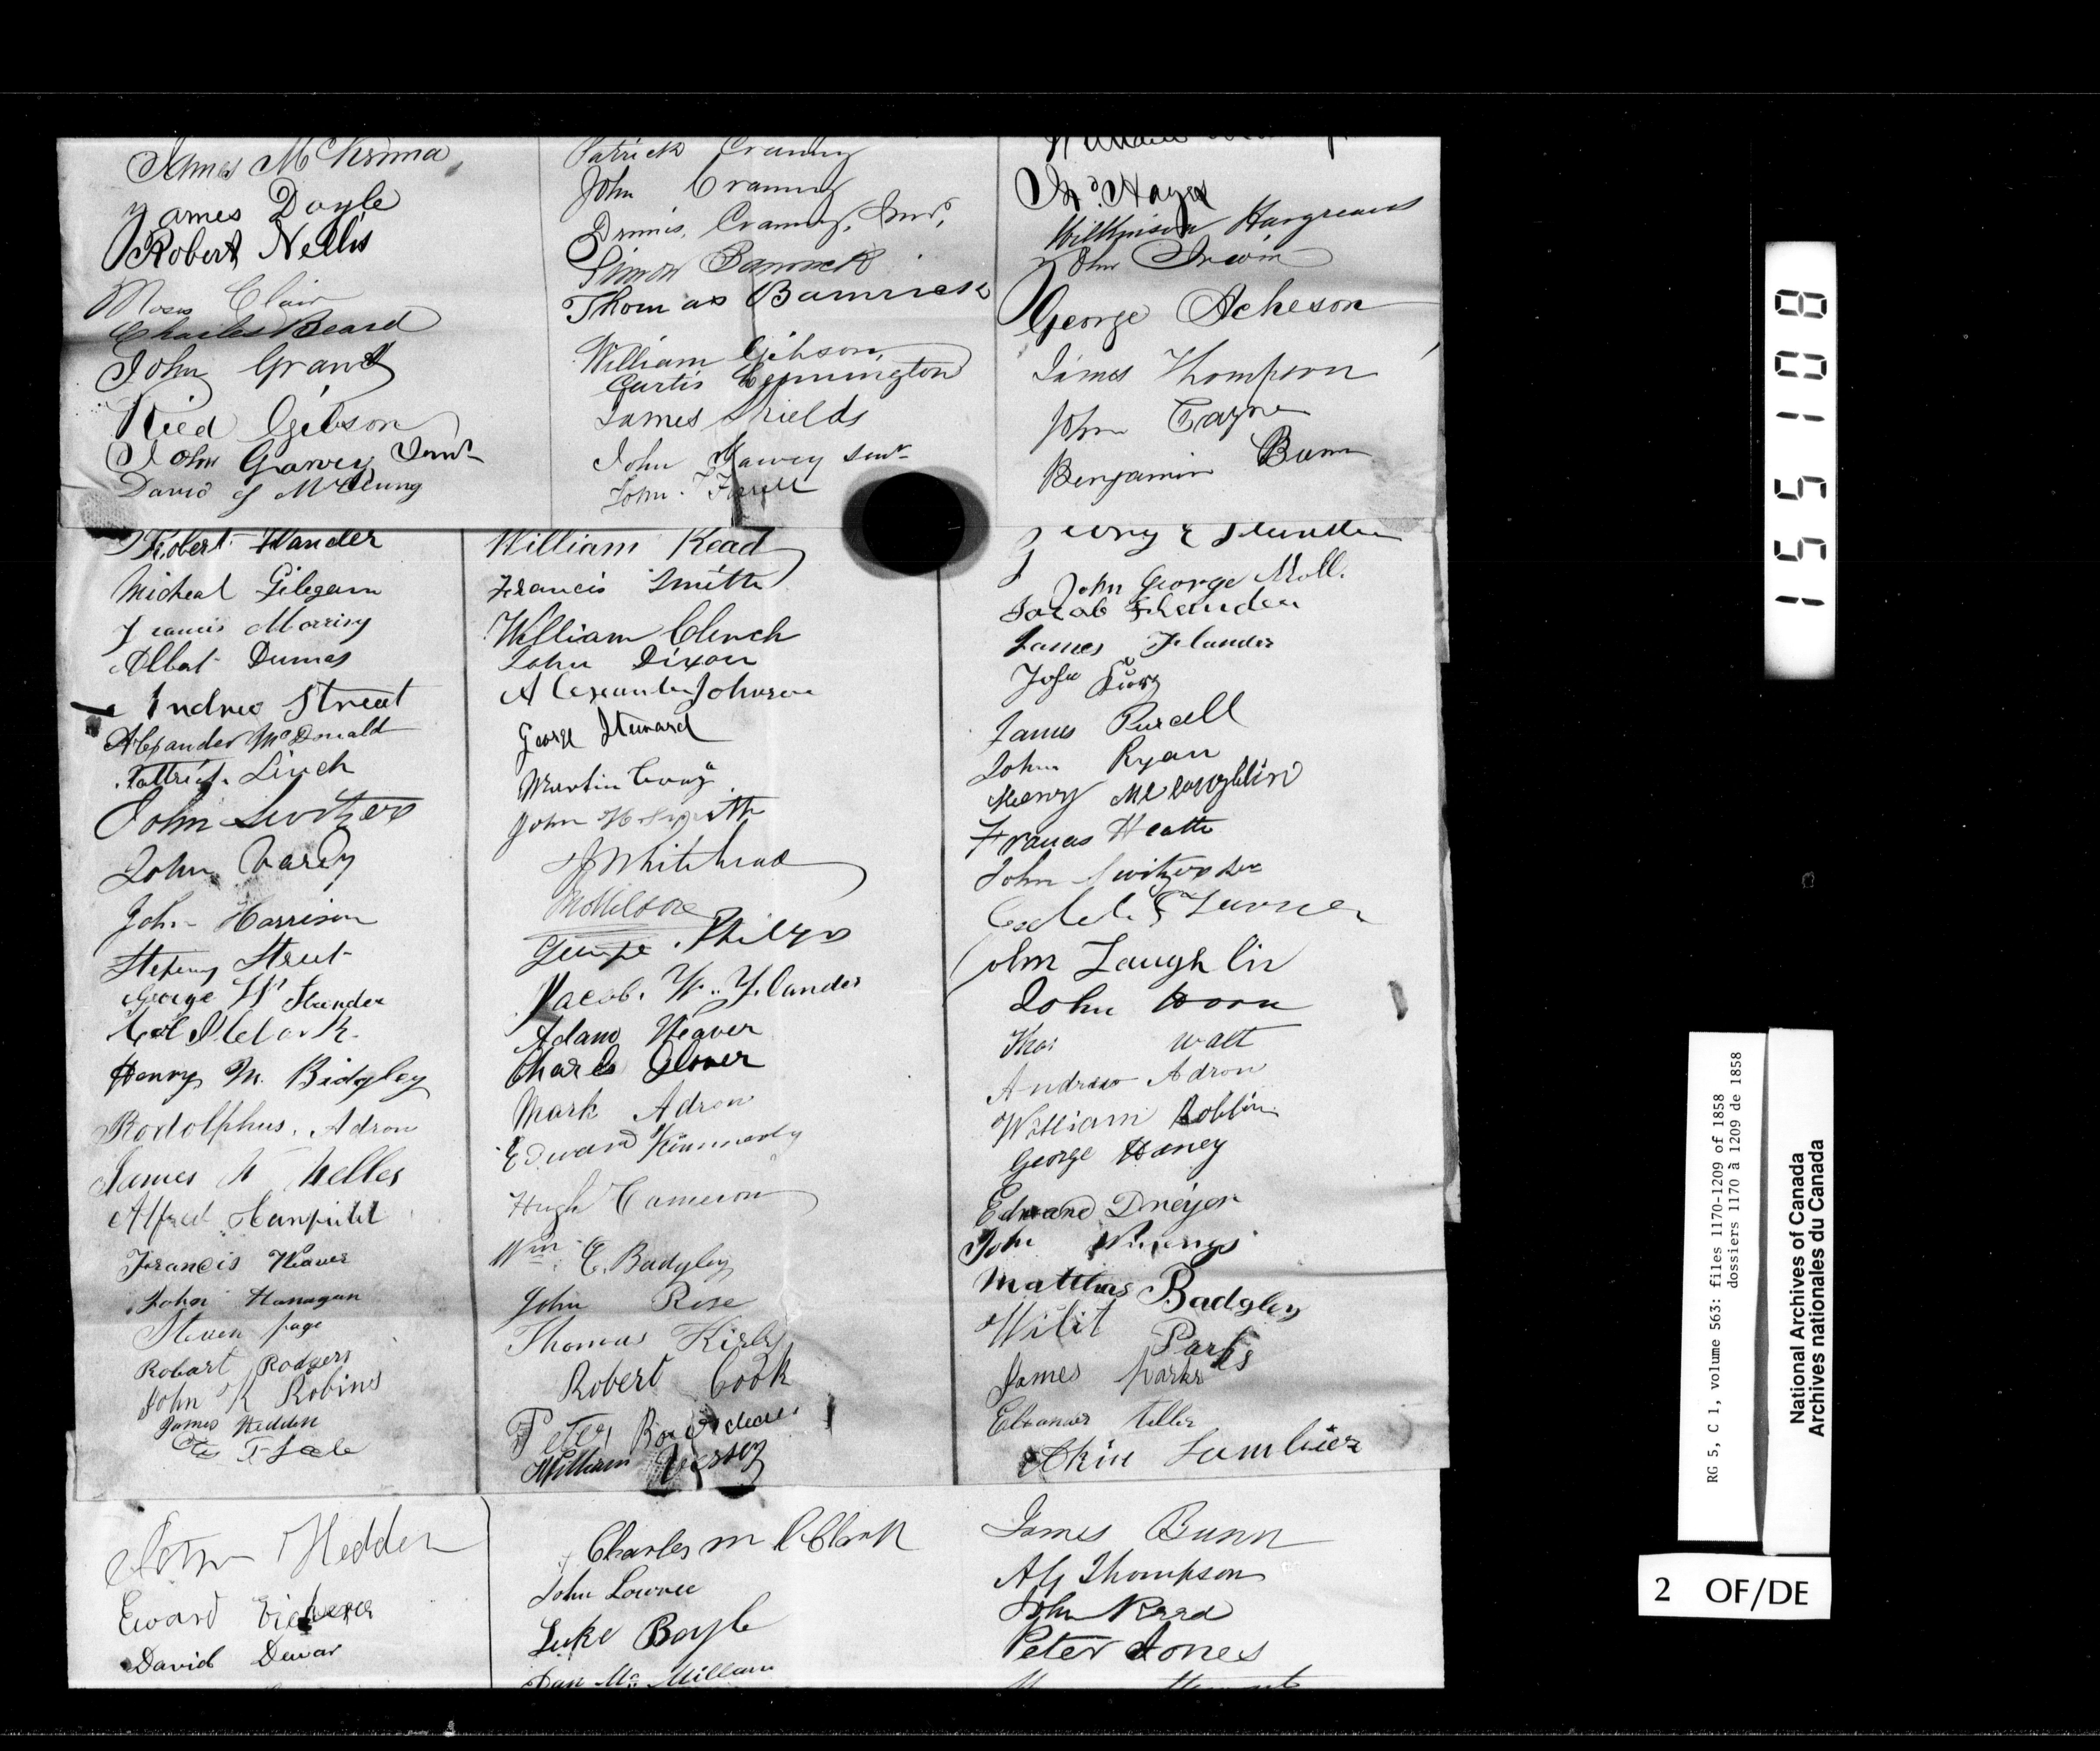 James McKenna
James Doyle
Robert Nellis
Moses Clair
Charles Beard
John Grant
Ried Gibson
John Garvey Junr
David of McClung
Patrick Cranny
John Cranny
Dennis Cranny, Junr,
Simon
Thomas
William Gibson
Curtis Pennington
James Shields
John Garvey Senr
John
Hayes
Wilkinson Hargreaves
John Irwin
George Acheson
James Thompson
John
Benjamin Bunn
Robert Flander
Micheal Gilegam
Francis Morrisy
Albat Dumas
Andrew Street
Alexander McDonald
Pattrick Linch
John Switzer
John Vardy
John Harrison
Street
George W Flander
Henry M. Bidgley
Rodolphus. Adron
James Nelles
Alfred
Francis Weaver
John Hanagan
Steven page
Robart Rodgers
John R Robins
James Hedden
William Read
Francis Smith
William Clench
John Dixon
Alexander Johnson
George Steward
Martin
John H Smith
J Whitehead
Jacob. W. Flander
Adam Weaver
Charls Glover
Mark Adron
Edward Kinnnerdy
Hugh Cameron
Wm C. Badgley
John Rose
Thomas Kirby
Robert Cook
Peter
William
John George Moll.
Jacob Flander
James Flander
James Purcell
John Ryan
Henry McLoughlin
Francis Heath
John Switzer Sen
John Laughlin
John Horn
Thos Watt
Andrew Adron
William Roblin
George Haney
Edward Dneijer
John
Matthas Badgley
Wilit Parks
James parks
John Hedden
Eward
David Dewar
Charles m
John Lowree
Luke Boyle
Dan Mc Millan
James Bunn
AG Thompson
John Read
Peter Jones
155108
RG 5, C 1, volume 563: files 1170-1209 of 1858
dossiers 1170 à 1209 de 1858
National Archives of Canada
Archives nationales du Canada
2 OF/DE